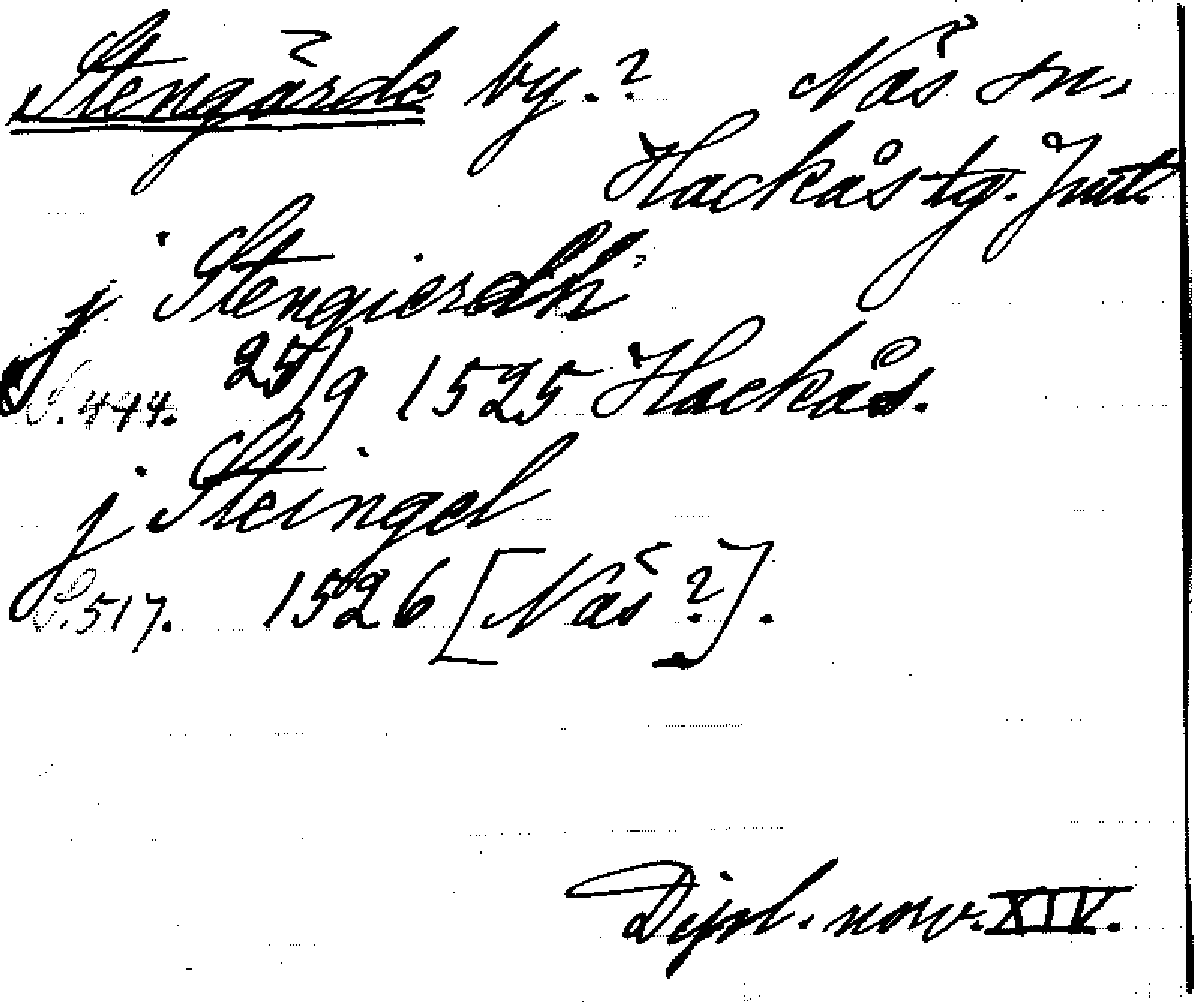 Stengärde by.? Näs sn,
Hackås tg. Jmt.
j Stengierdh
S. 444. 25/9 1525 Hackås.
j Steingel
S. 517. 1526 [Näs?].
Dipl. norv. XIV.